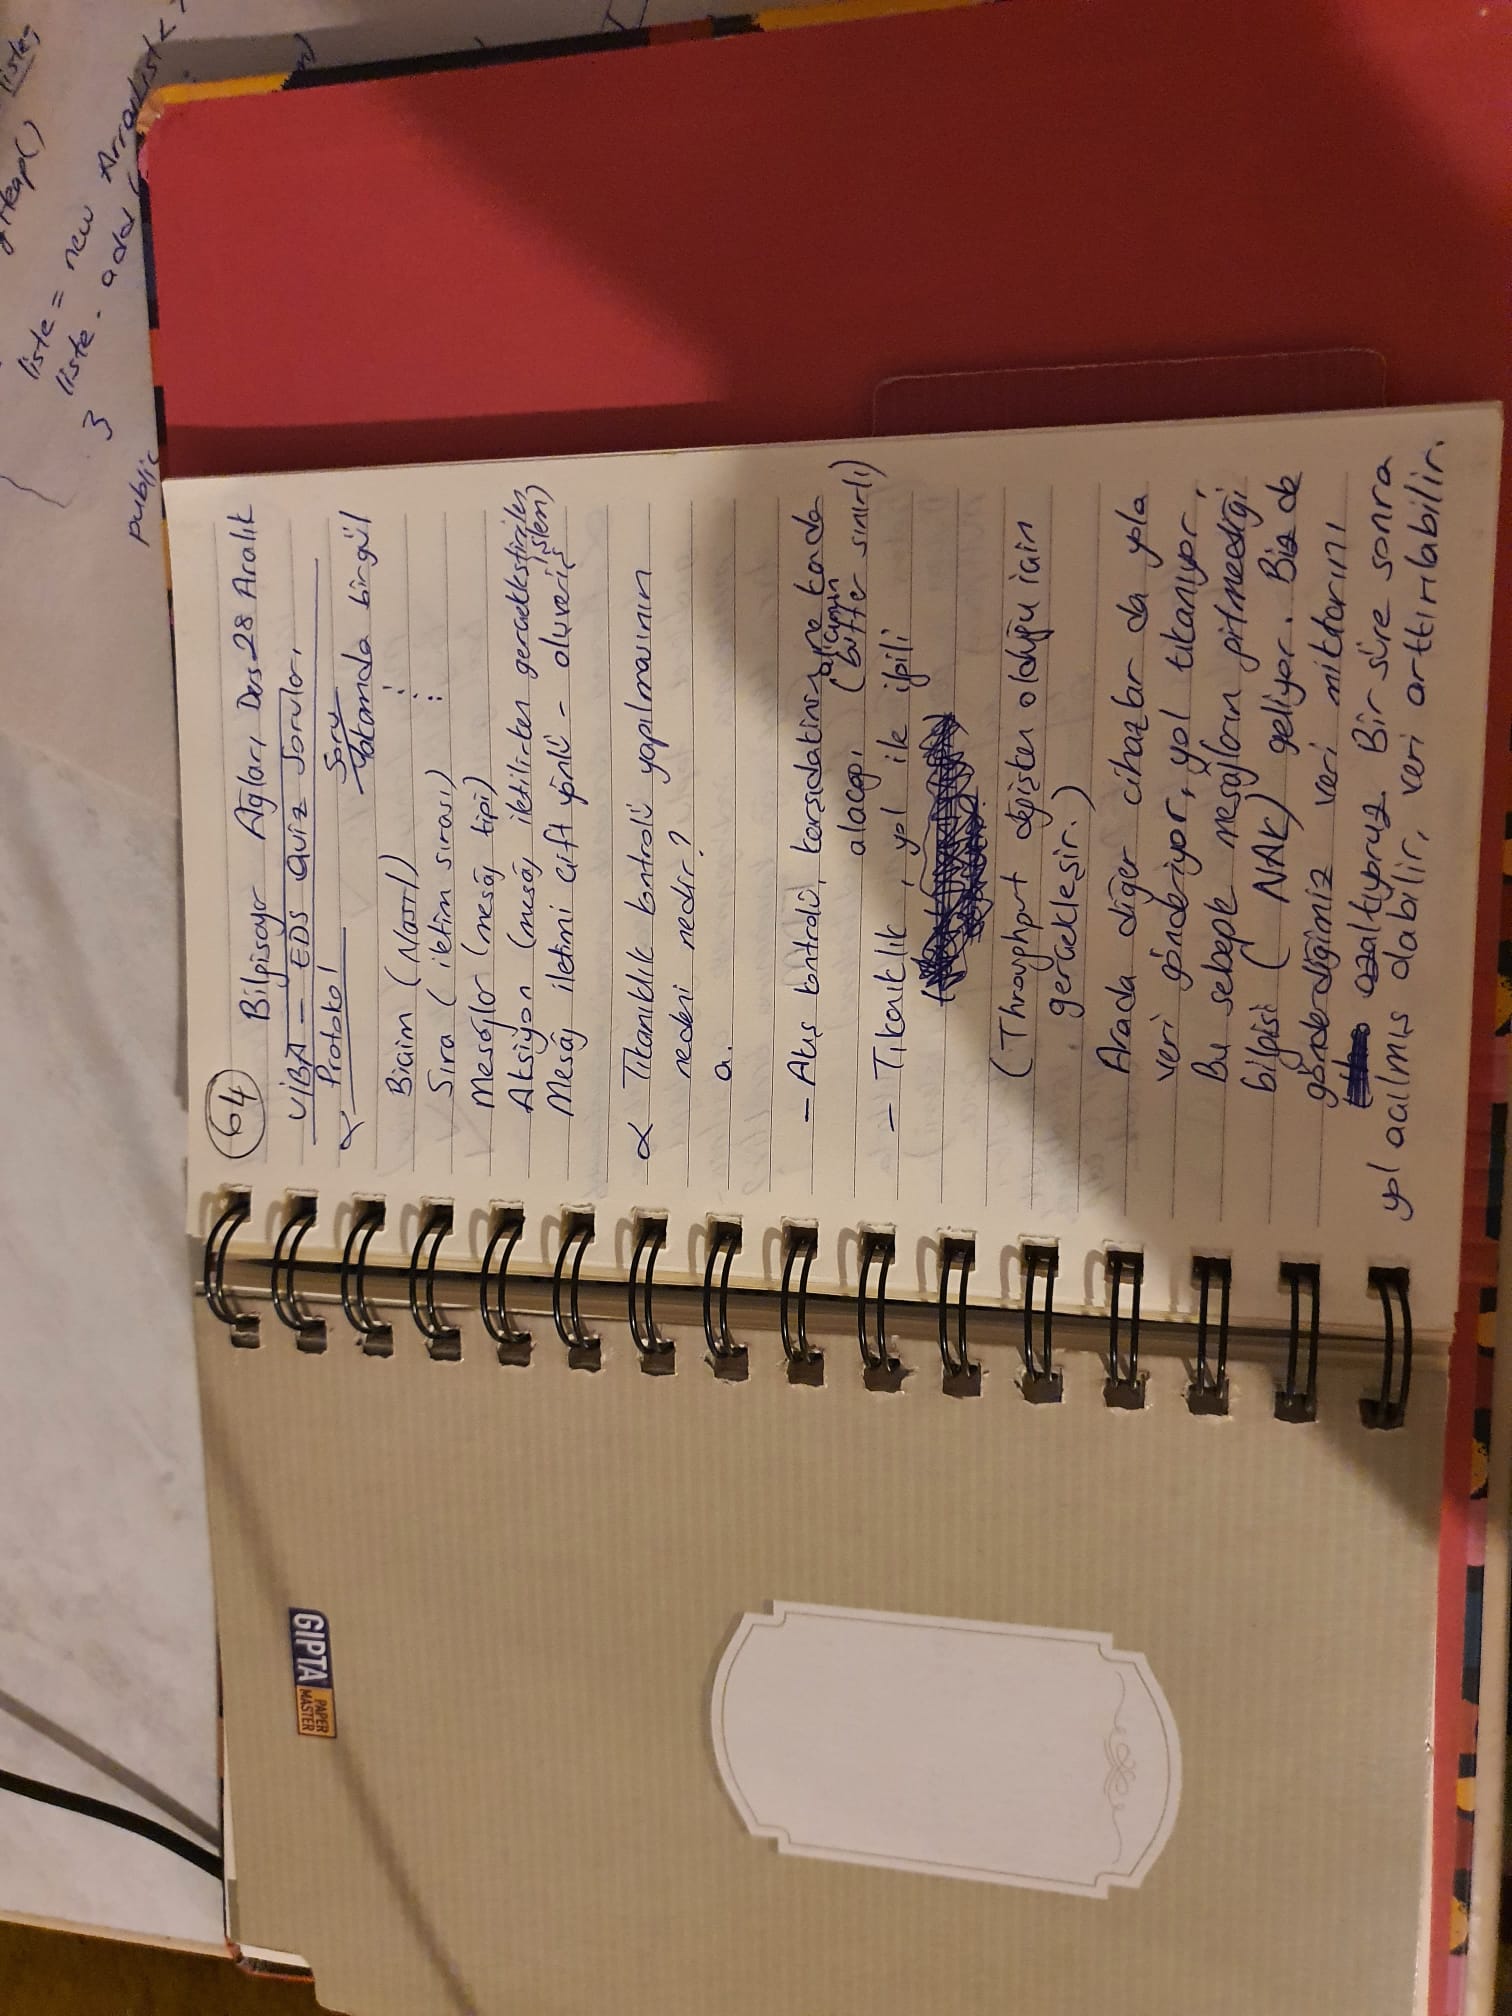 gHeap()
liste;
liste = new ArrayList<
liste.add(
}
public
GIPTA
PAPER
MASTER
64
Bilgisayar Ağları Ders 28 Aralık
UİBA - EDS Quiz Soruları
α Protokol
Soru
Yakamda bir gül
Biçim (Nasıl)
Sıra (iletim sırası)
Mesajlar (mesaj tipi)
Aksiyon (mesaj iletilirken gerçekleştirilen
işlem)
Mesaj iletimi çift yönlü - alışveriş
α Tıkanıklık kontrolü yapılmasının
nedeni nedir?
a.
- Akış kontrolü, karşıdakinin ne kadar
alacağı (alıcının buffer sınırlı)
- Tıkanıklık, yol ile ilgili
(Throughput değişken olduğu için
gerçekleşir.)
Arada diğer cihazlar da yola
veri gönderiyor, yol tıkanıyor,
Bu sebeple mesajların gitmediği
bilgisi (NAK) geliyor. Biz de
gönderdiğimiz veri miktarını
azaltıyoruz. Bir süre sonra
yol açılmış olabilir, veri arttırılabilir.